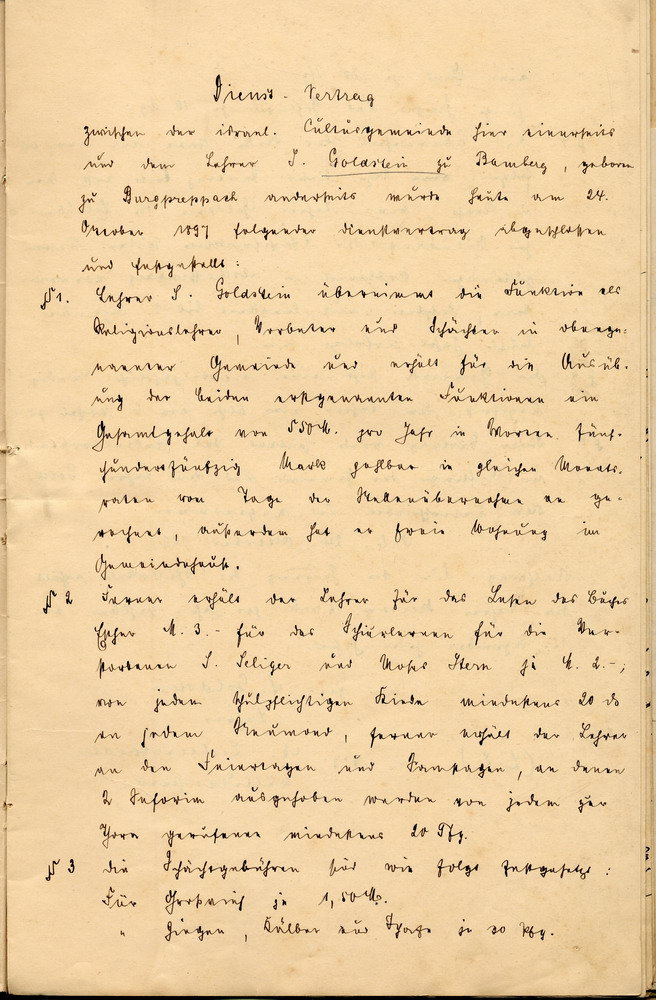 Dienst-Vertrag
zwischen der israel. Cultusgemeinde hier einerseits
und dem Lehrer S. Goldstein zu Bamberg, geboren
zu Burgpreppach anderseits wurde heute am 24.
Oktober 1897 folgender Dienstvertrag abgeschlossen
und festgestellt:
§ 1. Lehrer S. Goldstein übernimmt die Funktion als
Religionslehrer, Vorbeter und Schächter in obenge-
nannter Gemeinde und erhält für die Ausüb-
ung der beiden erstgenannten Funktionen ein
Gesamtgehalt von 550 M. pro Jahr in Worten fünf-
hundertfünfzig Mark zahlbar in gleichen Monats-
raten vom Tage der Stellenübernahme an ge-
rechnet, außerdem hat er freie Wohnung im
Gemeindehause.
§ 2 Ferner erhält der Lehrer für das Lesen des Buches
Esther M. 3.- für das Schiurlernen für die Ver-
storbenen S. Seliger und Moses Stern je M. 2.-;
von jedem schulpflichtigen Kinde mindestens 20 do
an jedem Neumond, ferner erhält der Lehrer
an den Feiertagen und Samstagen, an denen
2 Seforim ausgehoben werden von jedem zur
Thora gerufenen mindestens 20 Pfg.
§ 3 die Schächtgebühren sind wie folgt festgesetzt:
Für Großvieh je 1,50 M.
" Ziegen, Kälber und Schafe je 30 Pfg.